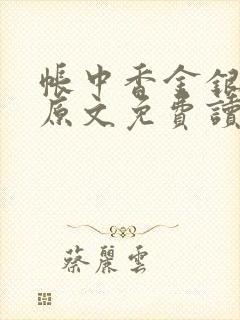 帳中香金銀
原文免費讀
蔡麗雲